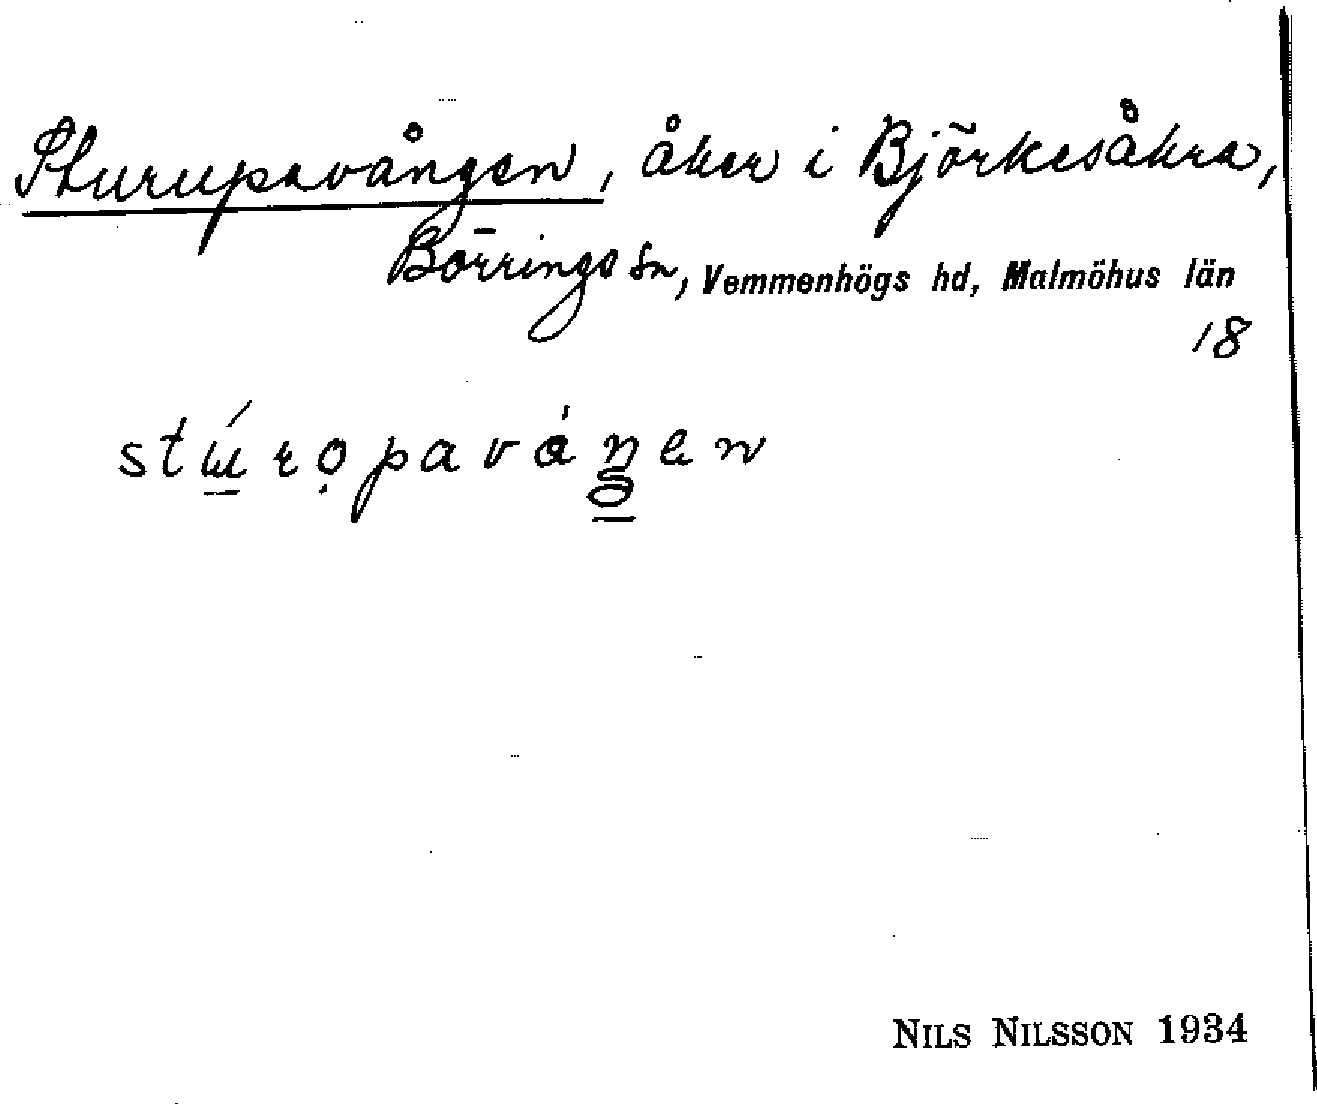 Sturupavången, åker i Björkesåkra,
Börrings sn, Vemmenhögs hd, Malmöhus län
18
stúropaváŋen
NILS NILSSON 1934